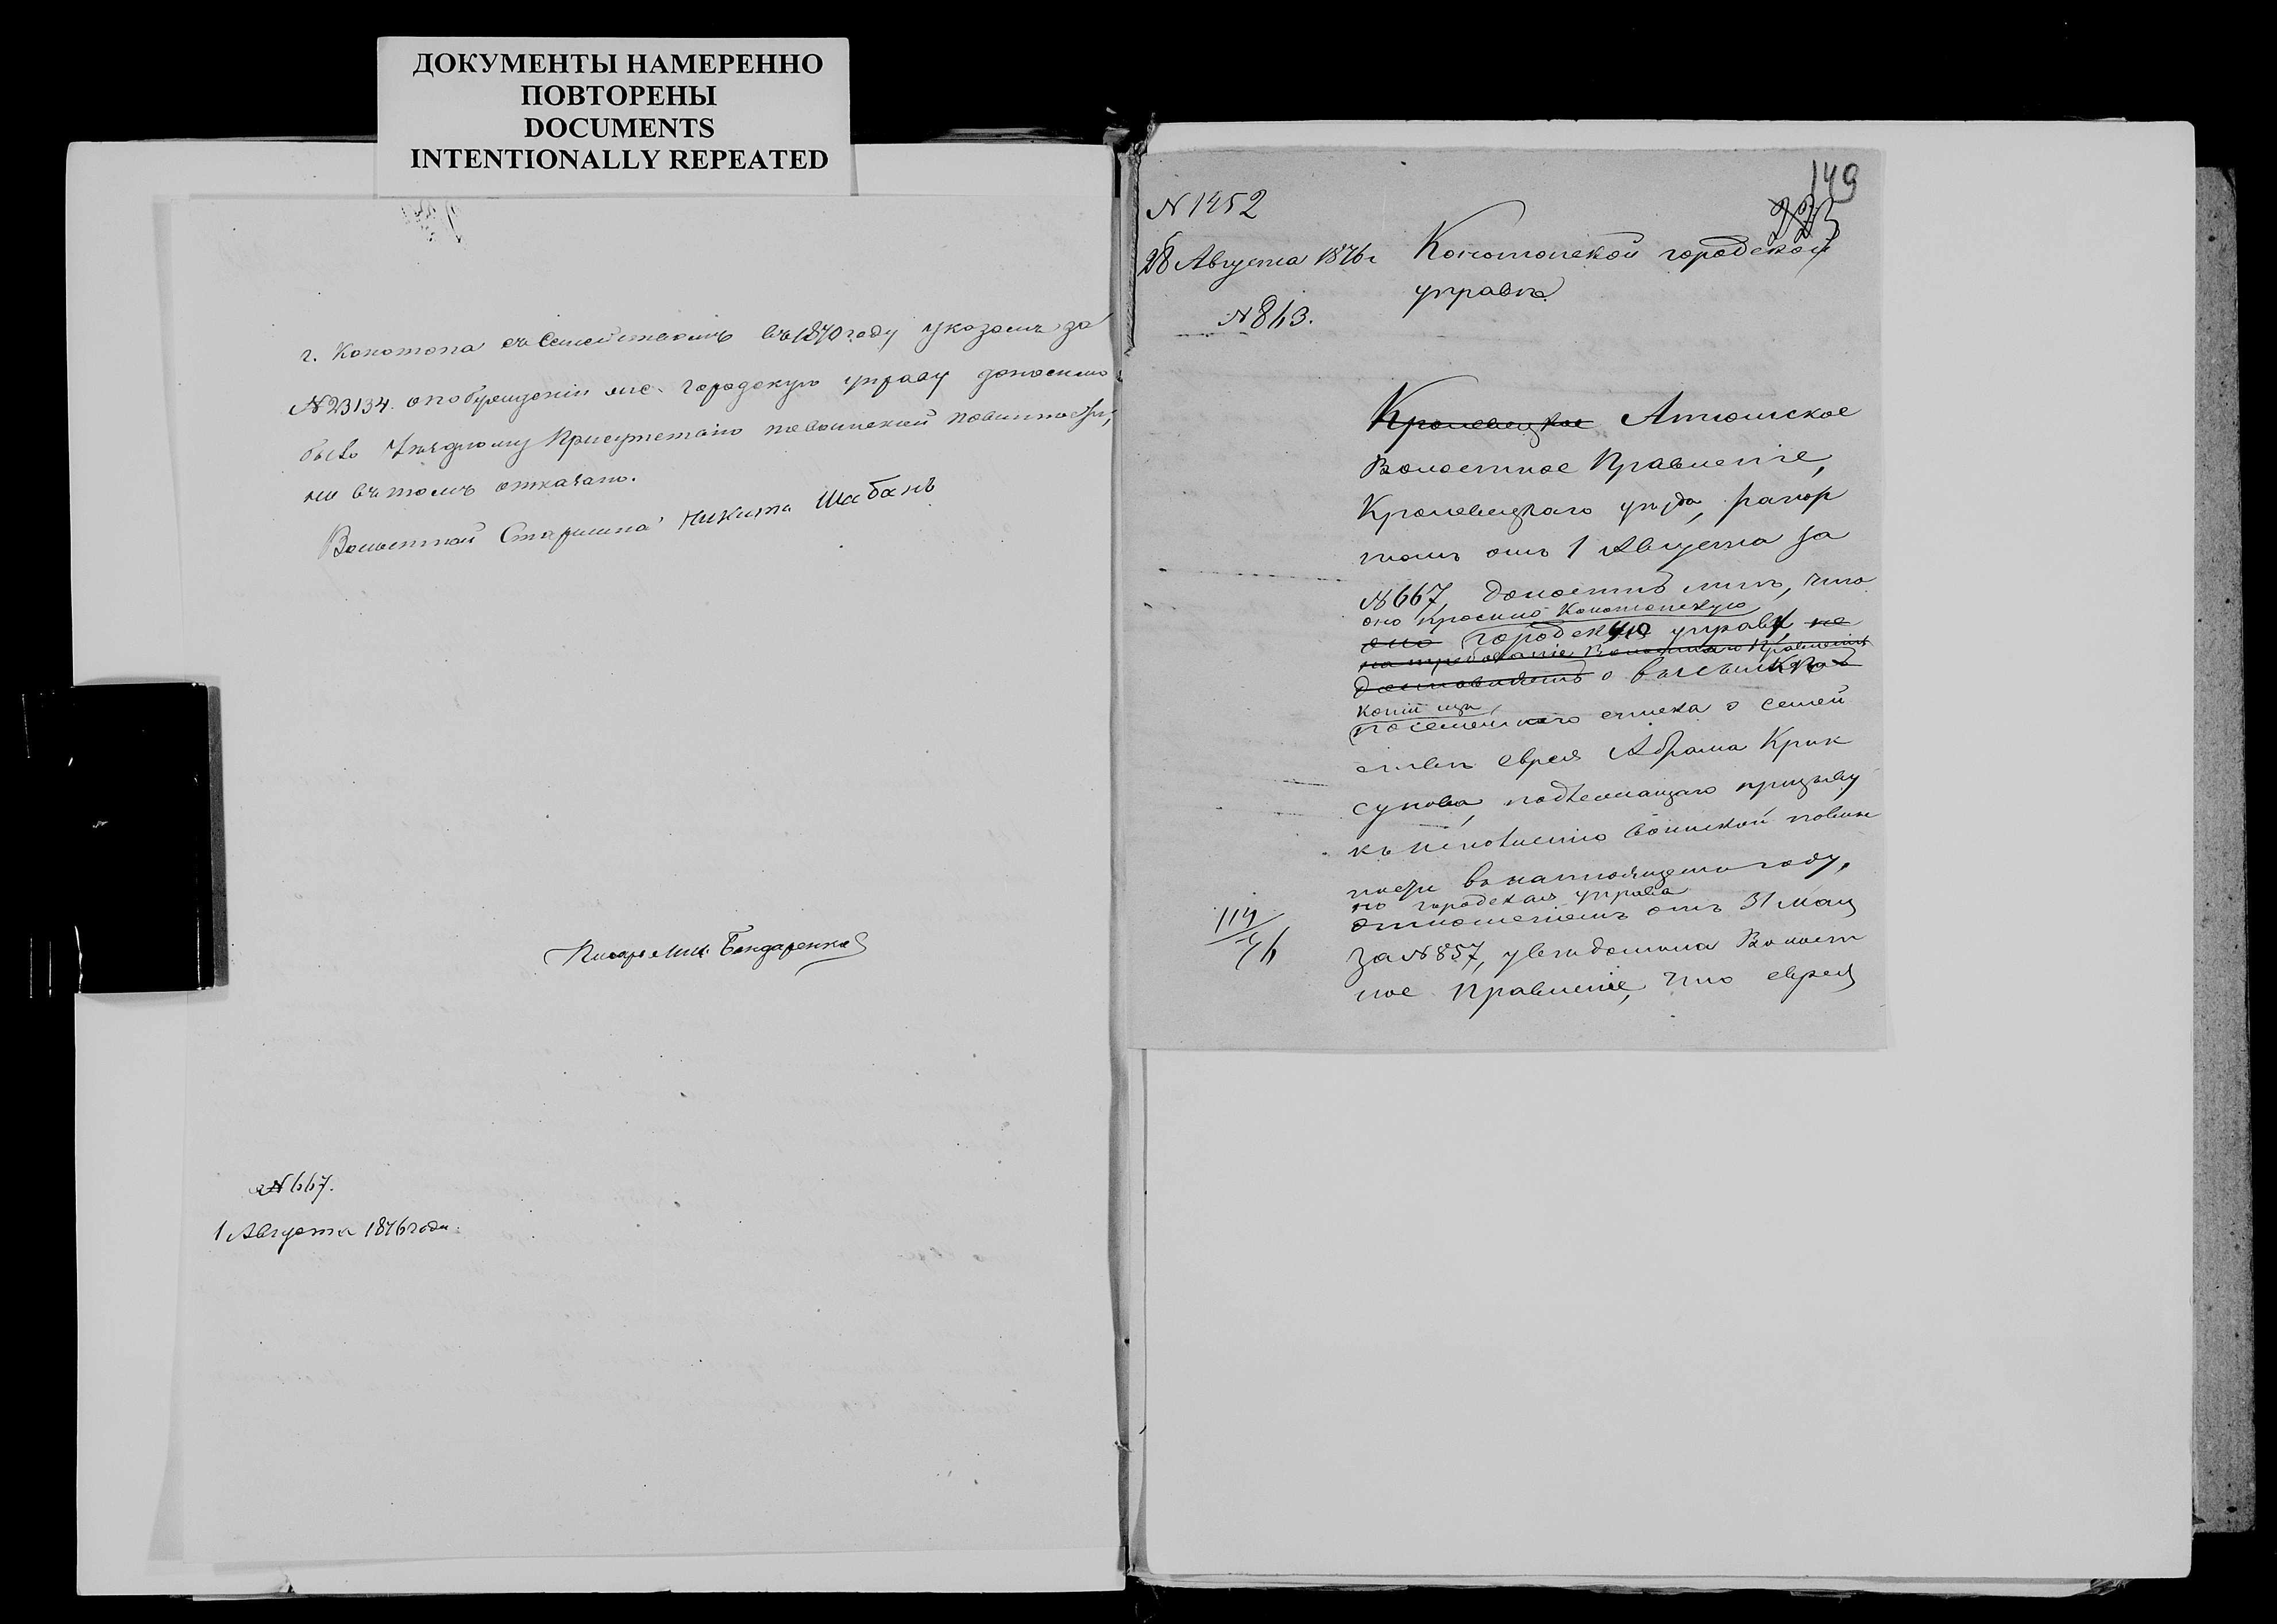 ДОКУМЕНТЫ НАМЕРЕННО
ПОВТОРЕНЫ
DOCUMENTS
INTENTIONALLY REPEATED
г. Конотопа съ Семействомъ въ 1870 году указомъ за
№ 23134. о побужденіи же городскую управу доносимо
было Уѣздному Присутствію по воинской повинности,
но въ томъ отказано.
Волостной Старшина Никита Шабанъ
Писарь Мих. Бондаренко
№ 667.
1 Августа 1876 года.
149
223
№ 1452
28 Августа 1876 г
№ 863.
Конотопской городской
управѣ.
Кролевецкое Атюшское
Волостное Правленіе,
Кролевецкаго уѣзда, рапор
томъ отъ 1 Августа за
№ 667, доноситъ мнѣ, что
оно просило Конотопскую
оно городскую управу не
на требованіе Волостнаго Правленія
о высылкѣ
копіи изъ
посемейнаго списка о семей
ствѣ еврея Абрама Крик
сунова, подлежащаго призыву
къ исполненію воинской повин
ности въ настоящемъ году,
но городская управа
отношеніемъ отъ 31 Мая
за № 857, увѣдомила Волост
ное Правленіе, что еврея
114
76